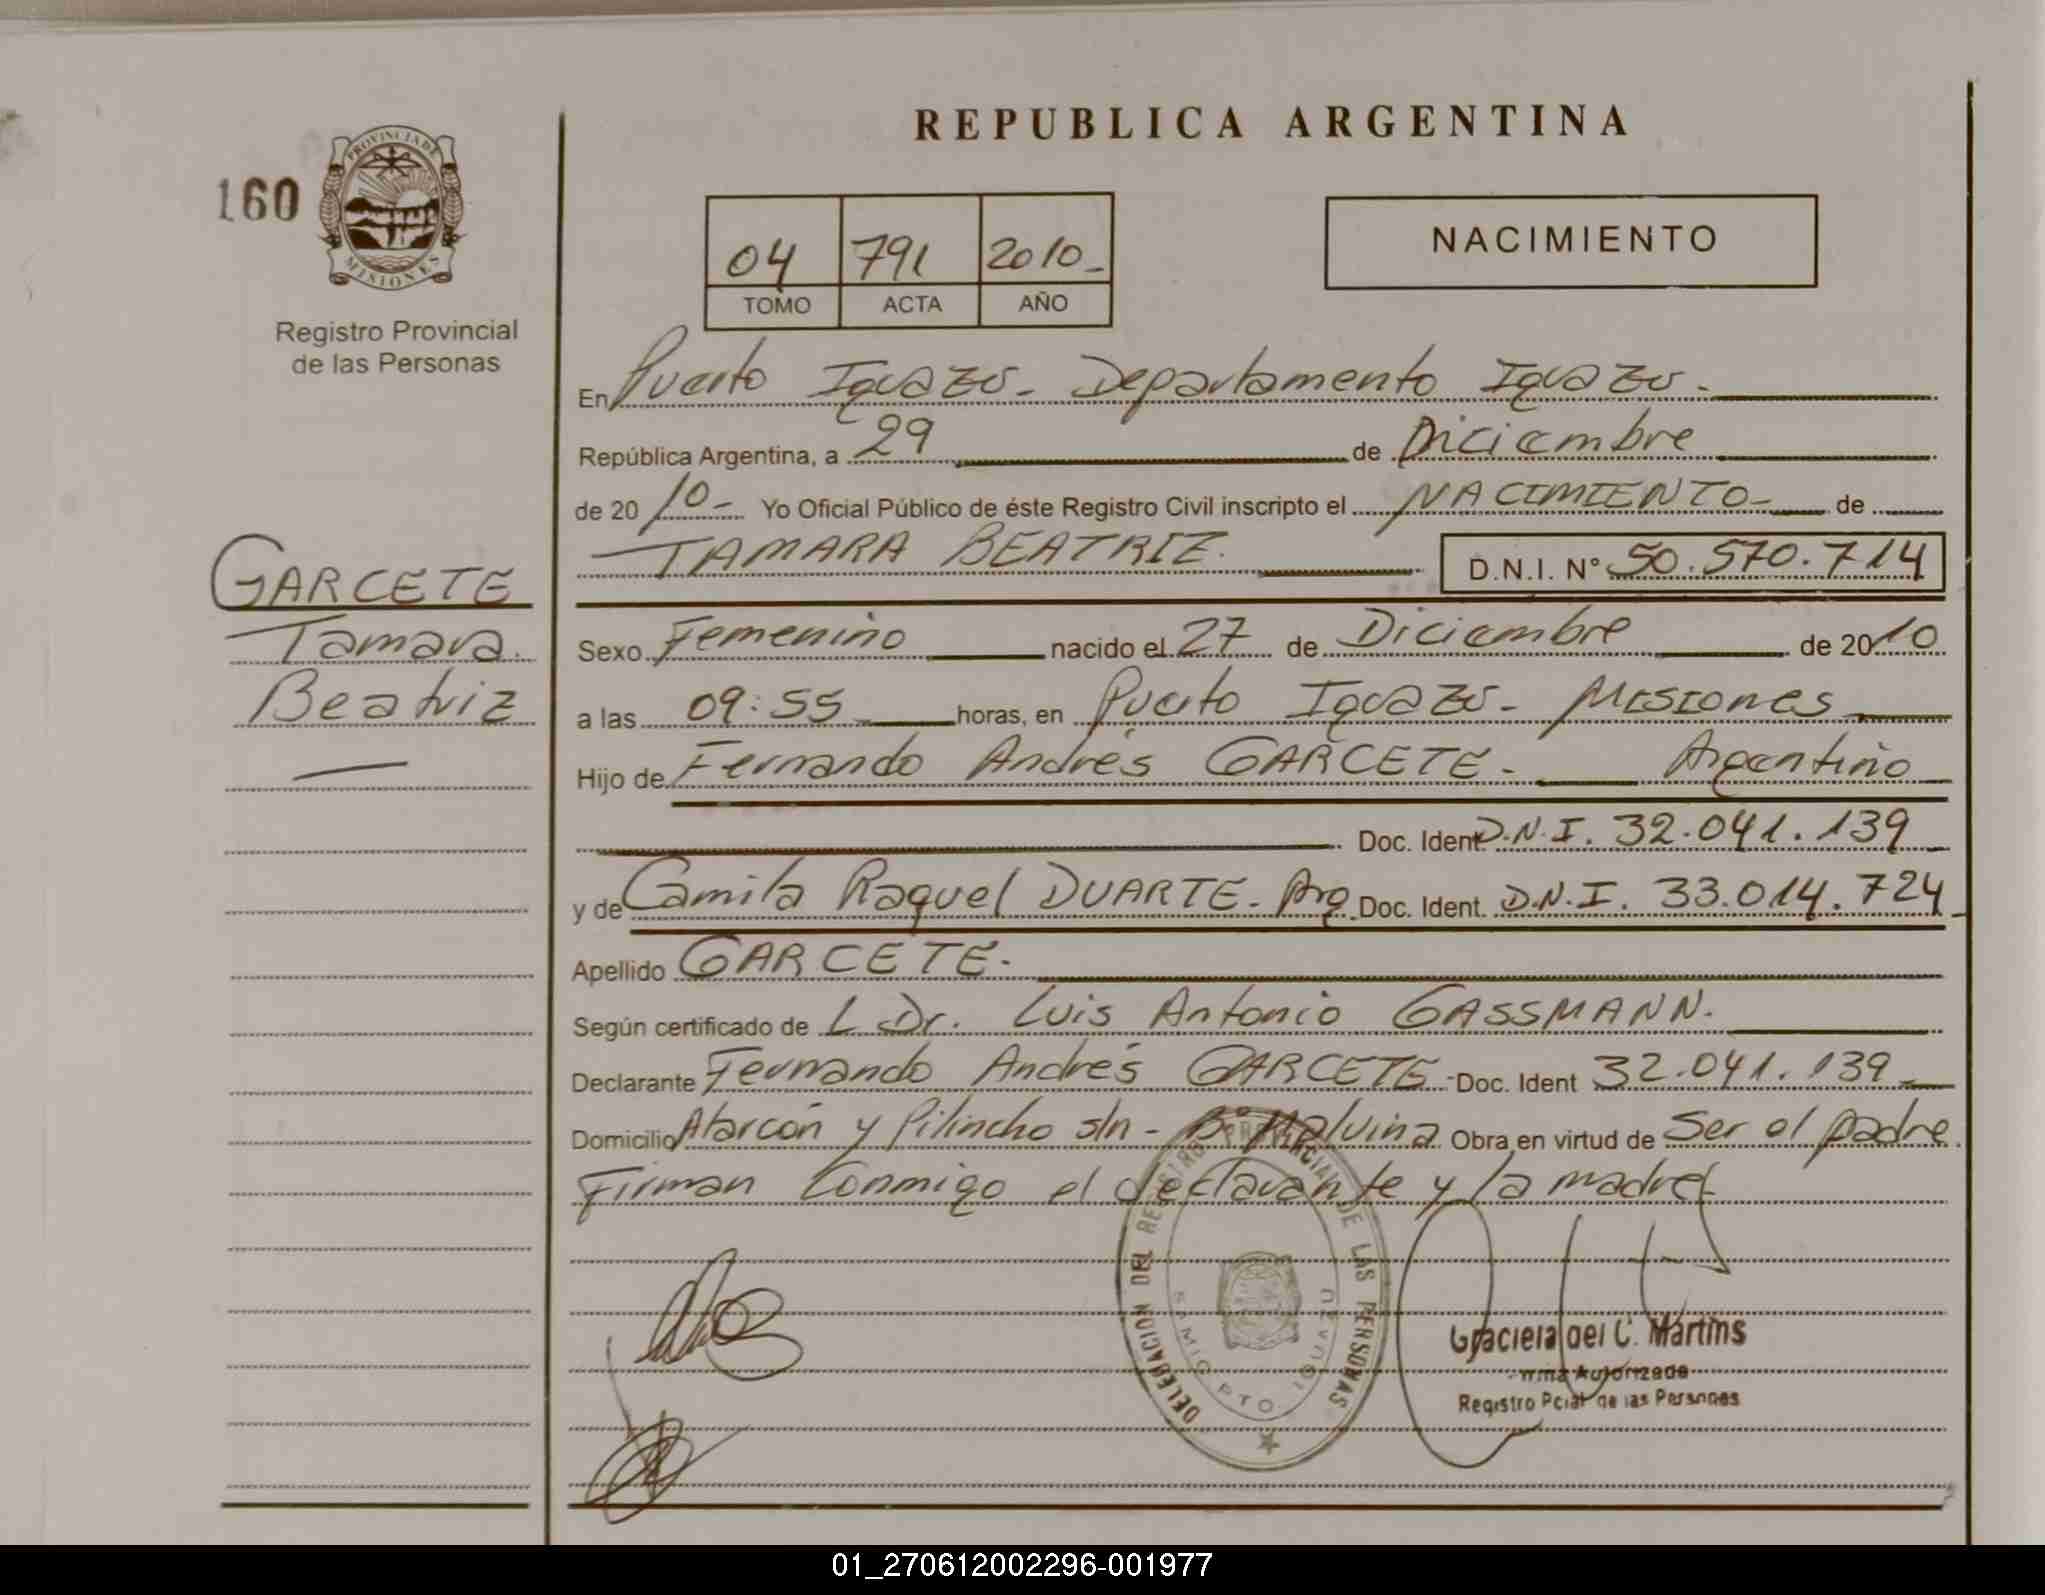 REPUBLICA ARGENTINA
160
PROVINCIA DE
MISIONES
Registro Provincial
de las Personas
04 791 2010-
TOMO ACTA AÑO
NACIMIENTO
En Puerto Iguazú - Departamento Iguazú -
República Argentina, a 29 de Diciembre
de 2010- Yo Oficial Público de éste Registro Civil inscripto el NACIMIENTO- de
TAMARA BEATRIZ. D.N.I. N° 50.570.714
GARCETE
Tamara
Beatriz
Sexo Femenino nacido el 27 de Diciembre de 2010
a las 09:55 horas, en Puerto Iguazú - Misiones
Hijo de Fernando Andrés GARCETE - Argentino
Doc. Ident D.N.I. 32.041.139
y de Camila Raquel DUARTE - Arg Doc. Ident. D.N.I. 33.014.724
Apellido GARCETE -
Según certificado de L Dr. Luis Antonio GASSMANN.
Declarante Fernando Andrés GARCETE - Doc. Ident 32.041.139
Domicilio Alarcón y Pilincho s/n - B° Malvina Obra en virtud de Ser el padre
Firman Conmigo el declarante y la madre
DELEGACION DEL REGISTRO PROVINCIAL DE LAS PERSONAS
PTO IGUAZU
Graciela del C. Martins
Firma Autorizada
Registro Pcial de las Personas
01_270612002296-001977